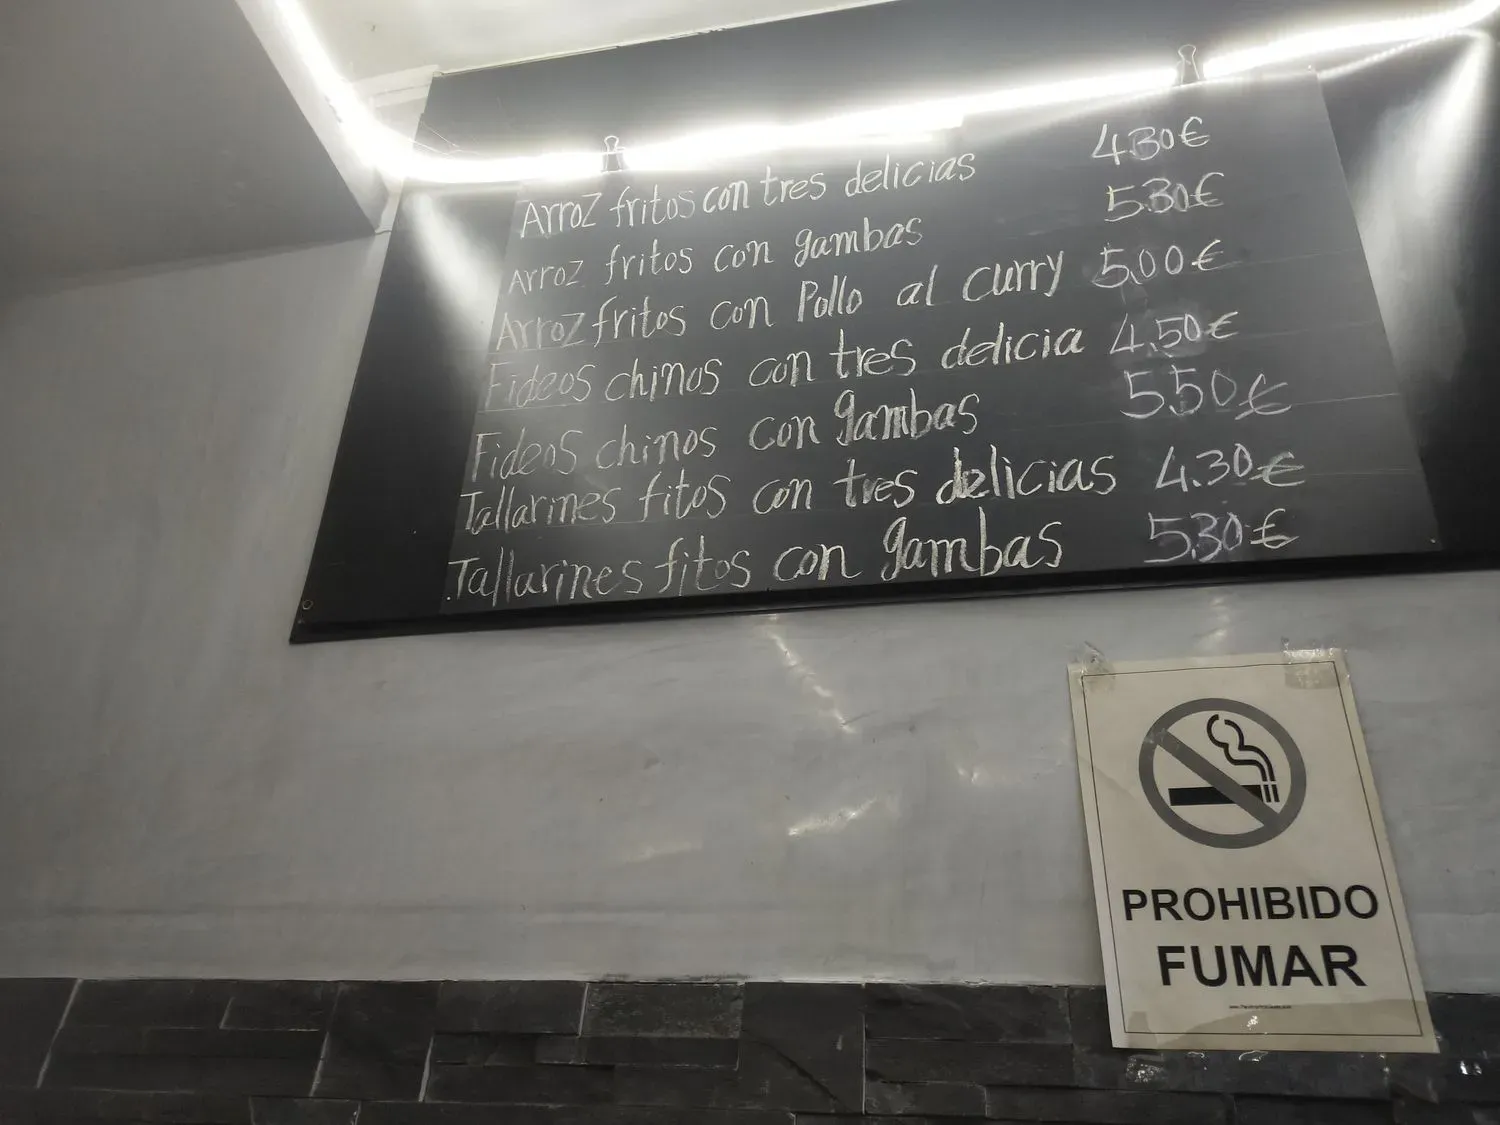 Arroz fritos con tres delicias 4.30€
Arroz fritos con gambas 5.30€
Arroz fritos con Pollo al curry 5.00€
Fideos chinos con tres delicia 4.50€
Fideos chinos con gambas 5.50€
Tallarines fitos con tres delicias 4.30€
Tallarines fitos con gambas 5.30€
PROHIBIDO
FUMAR